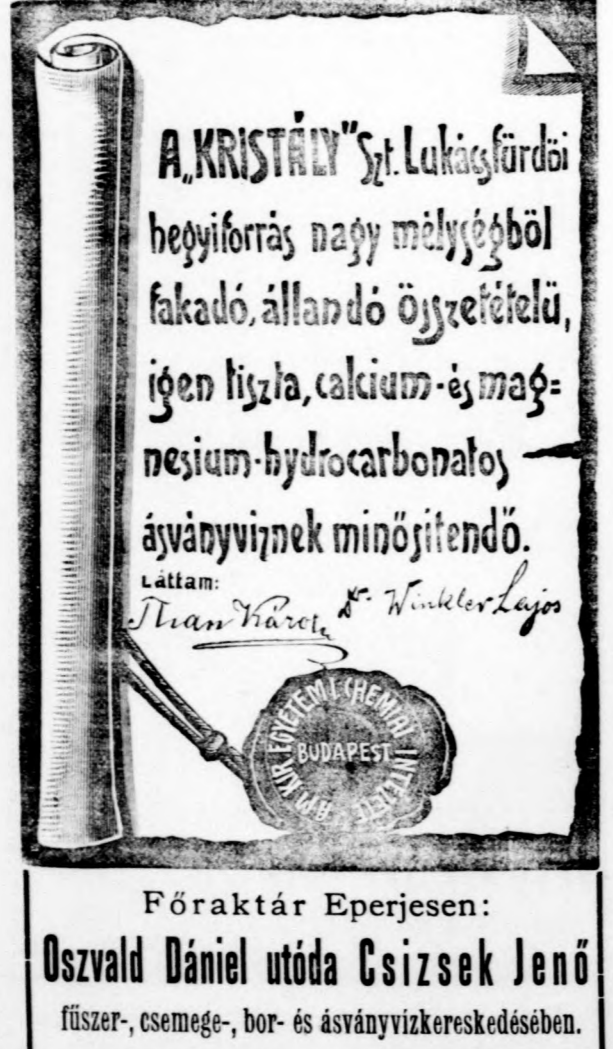 A „KRISTÁLY” Szt. Lukácsfürdői
hegyiforrás nagy mélységből
fakadó, állandó összetételű,
igen tiszta, calcium- és mag=
nesium-hydrocarbonatos
ásványviznek minősitendő.
Láttam:
Than Károly Dr. Winkler Lajos
A M. KIR. EGYETEMI CHEMIAI INTÉZETE
BUDAPEST
Főraktár Eperjesen:
Oszvald Dániel utóda Csizsek Jenő
fűszer-, csemege-, bor- és ásványvizkereskedésében.